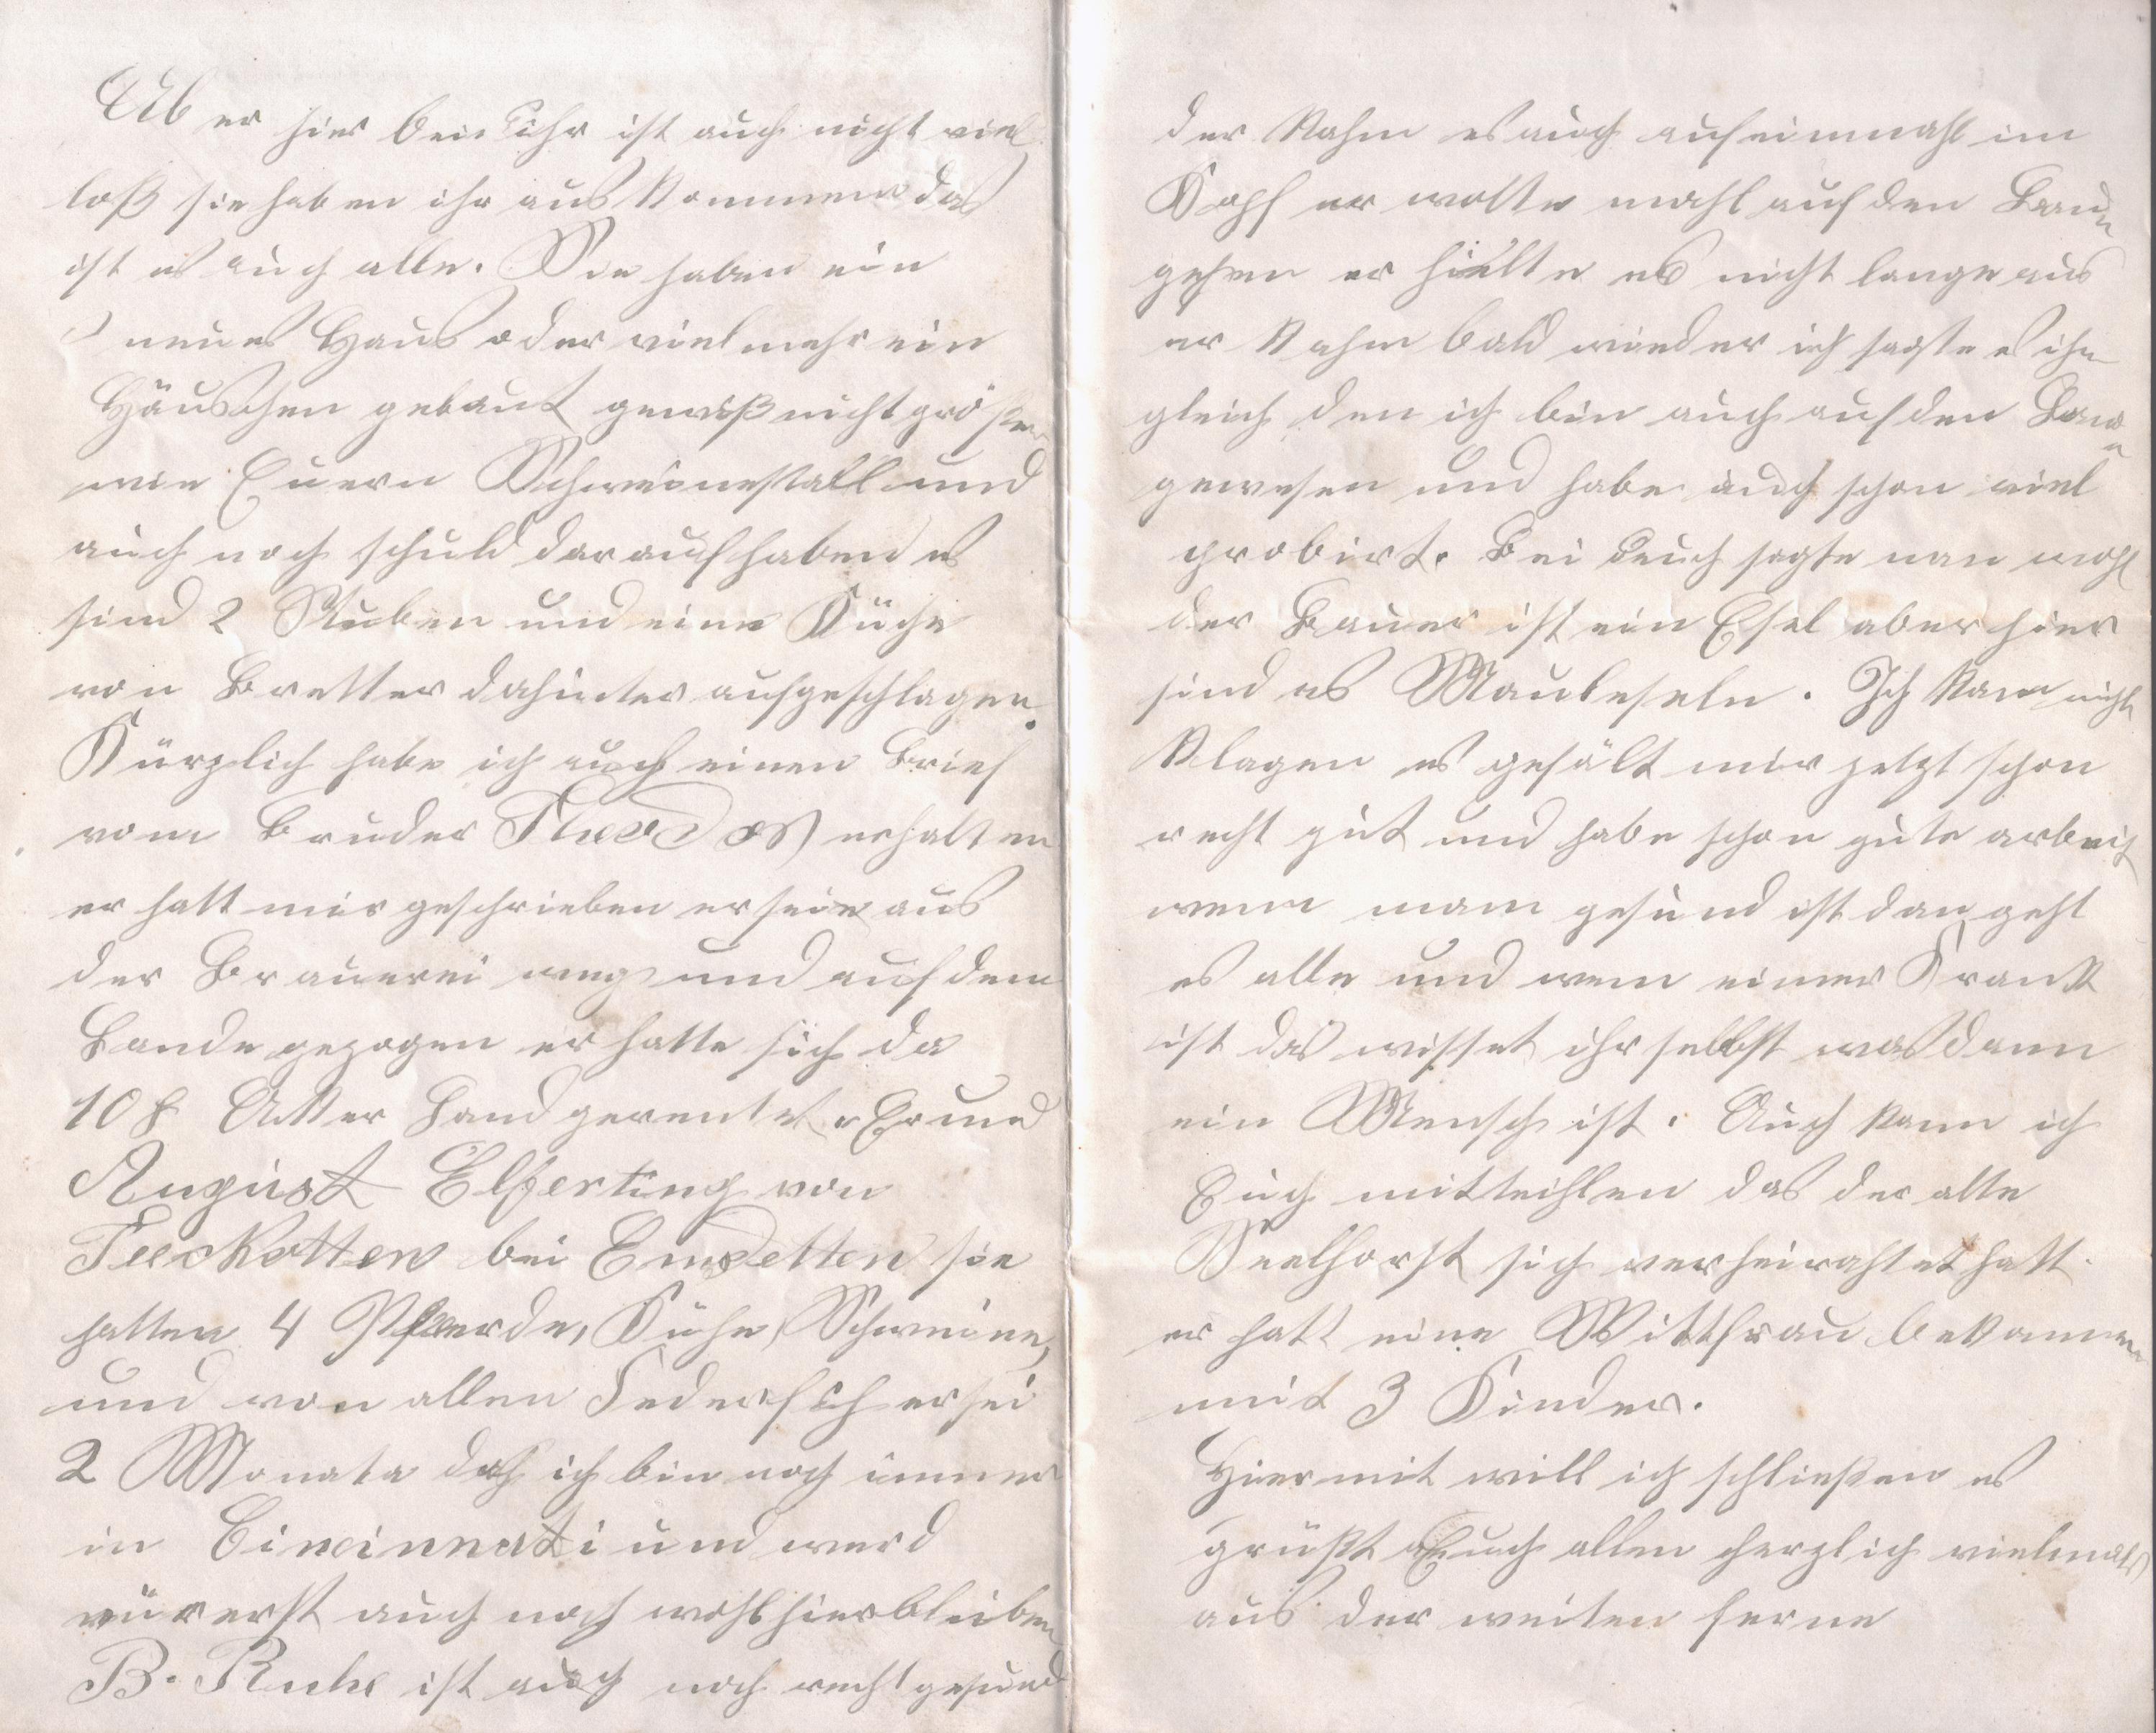 Ab er hier bei ihr ist auch nicht viel
loß sie haben ihr aus kommen das
ist es auch alle. Sie haben ein
neues Haus oder vielmehr ein
Häuschen gebaut gewiß nicht größer
wie Euern Schweinestall und
auch noch schuld darauf haben es
sind 2 Stuben und eine Küche
von Bretter dahinter aufgeschlagen.
Kürzlich habe ich auch einen Brief
vom Bruder erhalten
er hatt mir geschrieben er seie aus
der Brauerei weg und auf dem
Lande gezogen er hatte sich da
108 Akker Land gerentet Er und
August Elferting von
bei Emsdetten sie
hatten 4 Pferde, Kühe, Schweine,
und von allen Federfich er sei
2 Monate da ich bin noch immer
in Cincinnati und werd
vürerst auch noch wohl hier bleiben
B. Ruhe ist auch noch recht gesund
der kahm es auch aufeinmahl im
Kopf er wolte mahl auf den Land
gehen er hielte es nicht lange aus
er kahm bald wieder ich sagte es ihn
gleich den ich bin auch auf den Land
gewesen und habe auch schon viel
probirt. Bei Euch sagte man wohl
der Bauer ist ein Esel aber hier
sind es Mauleseln. Ich kann nicht
klagen es gefält mir jetzt schon
recht gut und habe schon gute arbeit
wenn mann gesund ist dan geht
es alle und wenn einer Krank
ist das wisset ihr selbst was dann
ein Mensch ist. Auch kann ich
Euch mitteihlen das der alte
Seelhorst sich verheirahtet hatt.
er hatt eine Wittfrau bekommen
mit 3 Kinder.
Hiermit will ich schließen es
grüßt Euch allen herzlich vielmals
aus der weiten ferne